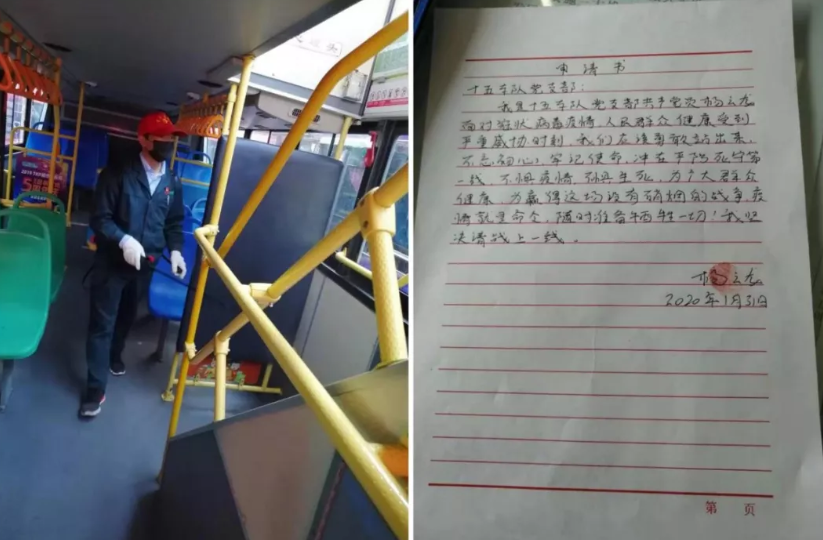 申请书
十五车队党支部：
我是十五车队党支部共产党员杨云龙
面对冠状病毒疫情，人民群众健康受到
严重威协时刻，我们应该勇敢站出来，
不忘初心，牢记使命，冲在严防死守第
一线，不惧疫情，不惧生死，为广大群众
健康，为赢得这场没有硝烟的战争，疫
情就是命令，随时准备牺牲一切！我坚
决请战上一线。
杨云龙
2020年1月31日
第 页